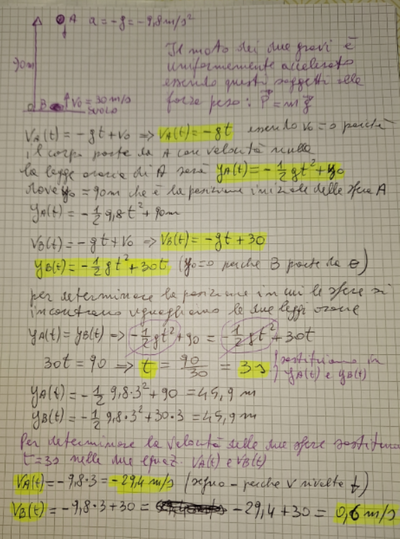 A a = -g = -9,8 m/s²
90m
B V₀ = 30 m/s
SUOLO
Il moto dei due gravi è
uniformemente accelerato
essendo questi soggetti alla
forza peso: P⃗ = m g⃗
VA(t) = -gt + V₀ ⇒ VA(t) = -gt essendo V₀ = 0 perché
il corpo parte da A con velocità nulla
la legge oraria di A sarà yA(t) = -1/2 gt² + y₀
dove y₀ = 90m che è la posizione iniziale della sfera A
yA(t) = -1/2 9,8 t² + 90m
VB(t) = -gt + V₀ ⇒ VB(t) = -gt + 30
yB(t) = -1/2 gt² + 30t (y₀ = 0 perché B parte da
per determinare la posizione in cui le sfere si
incontrano uguagliamo le due leggi orarie
yA(t) = yB(t) ⇒ -1/2 gt² + 90 = -1/2 gt² + 30t
30t = 90 ⇒ t = 90/30 = 3s (sostituiamo in
yA(t) e yB(t)
yA(t) = -1/2 9,8·3² + 90 = 45,9 m
yB(t) = -1/2 9,8·3² + 30·3 = 45,9 m
Per determinare la velocità delle due sfere
t = 3s nelle due equaz. VA(t) e VB(t)
VA(t) = -9,8·3 = -29,4 m/s (segno - perché V rivolta ↓)
VB(t) = -9,8·3 + 30 = -29,4 + 30 = 0,6 m/s